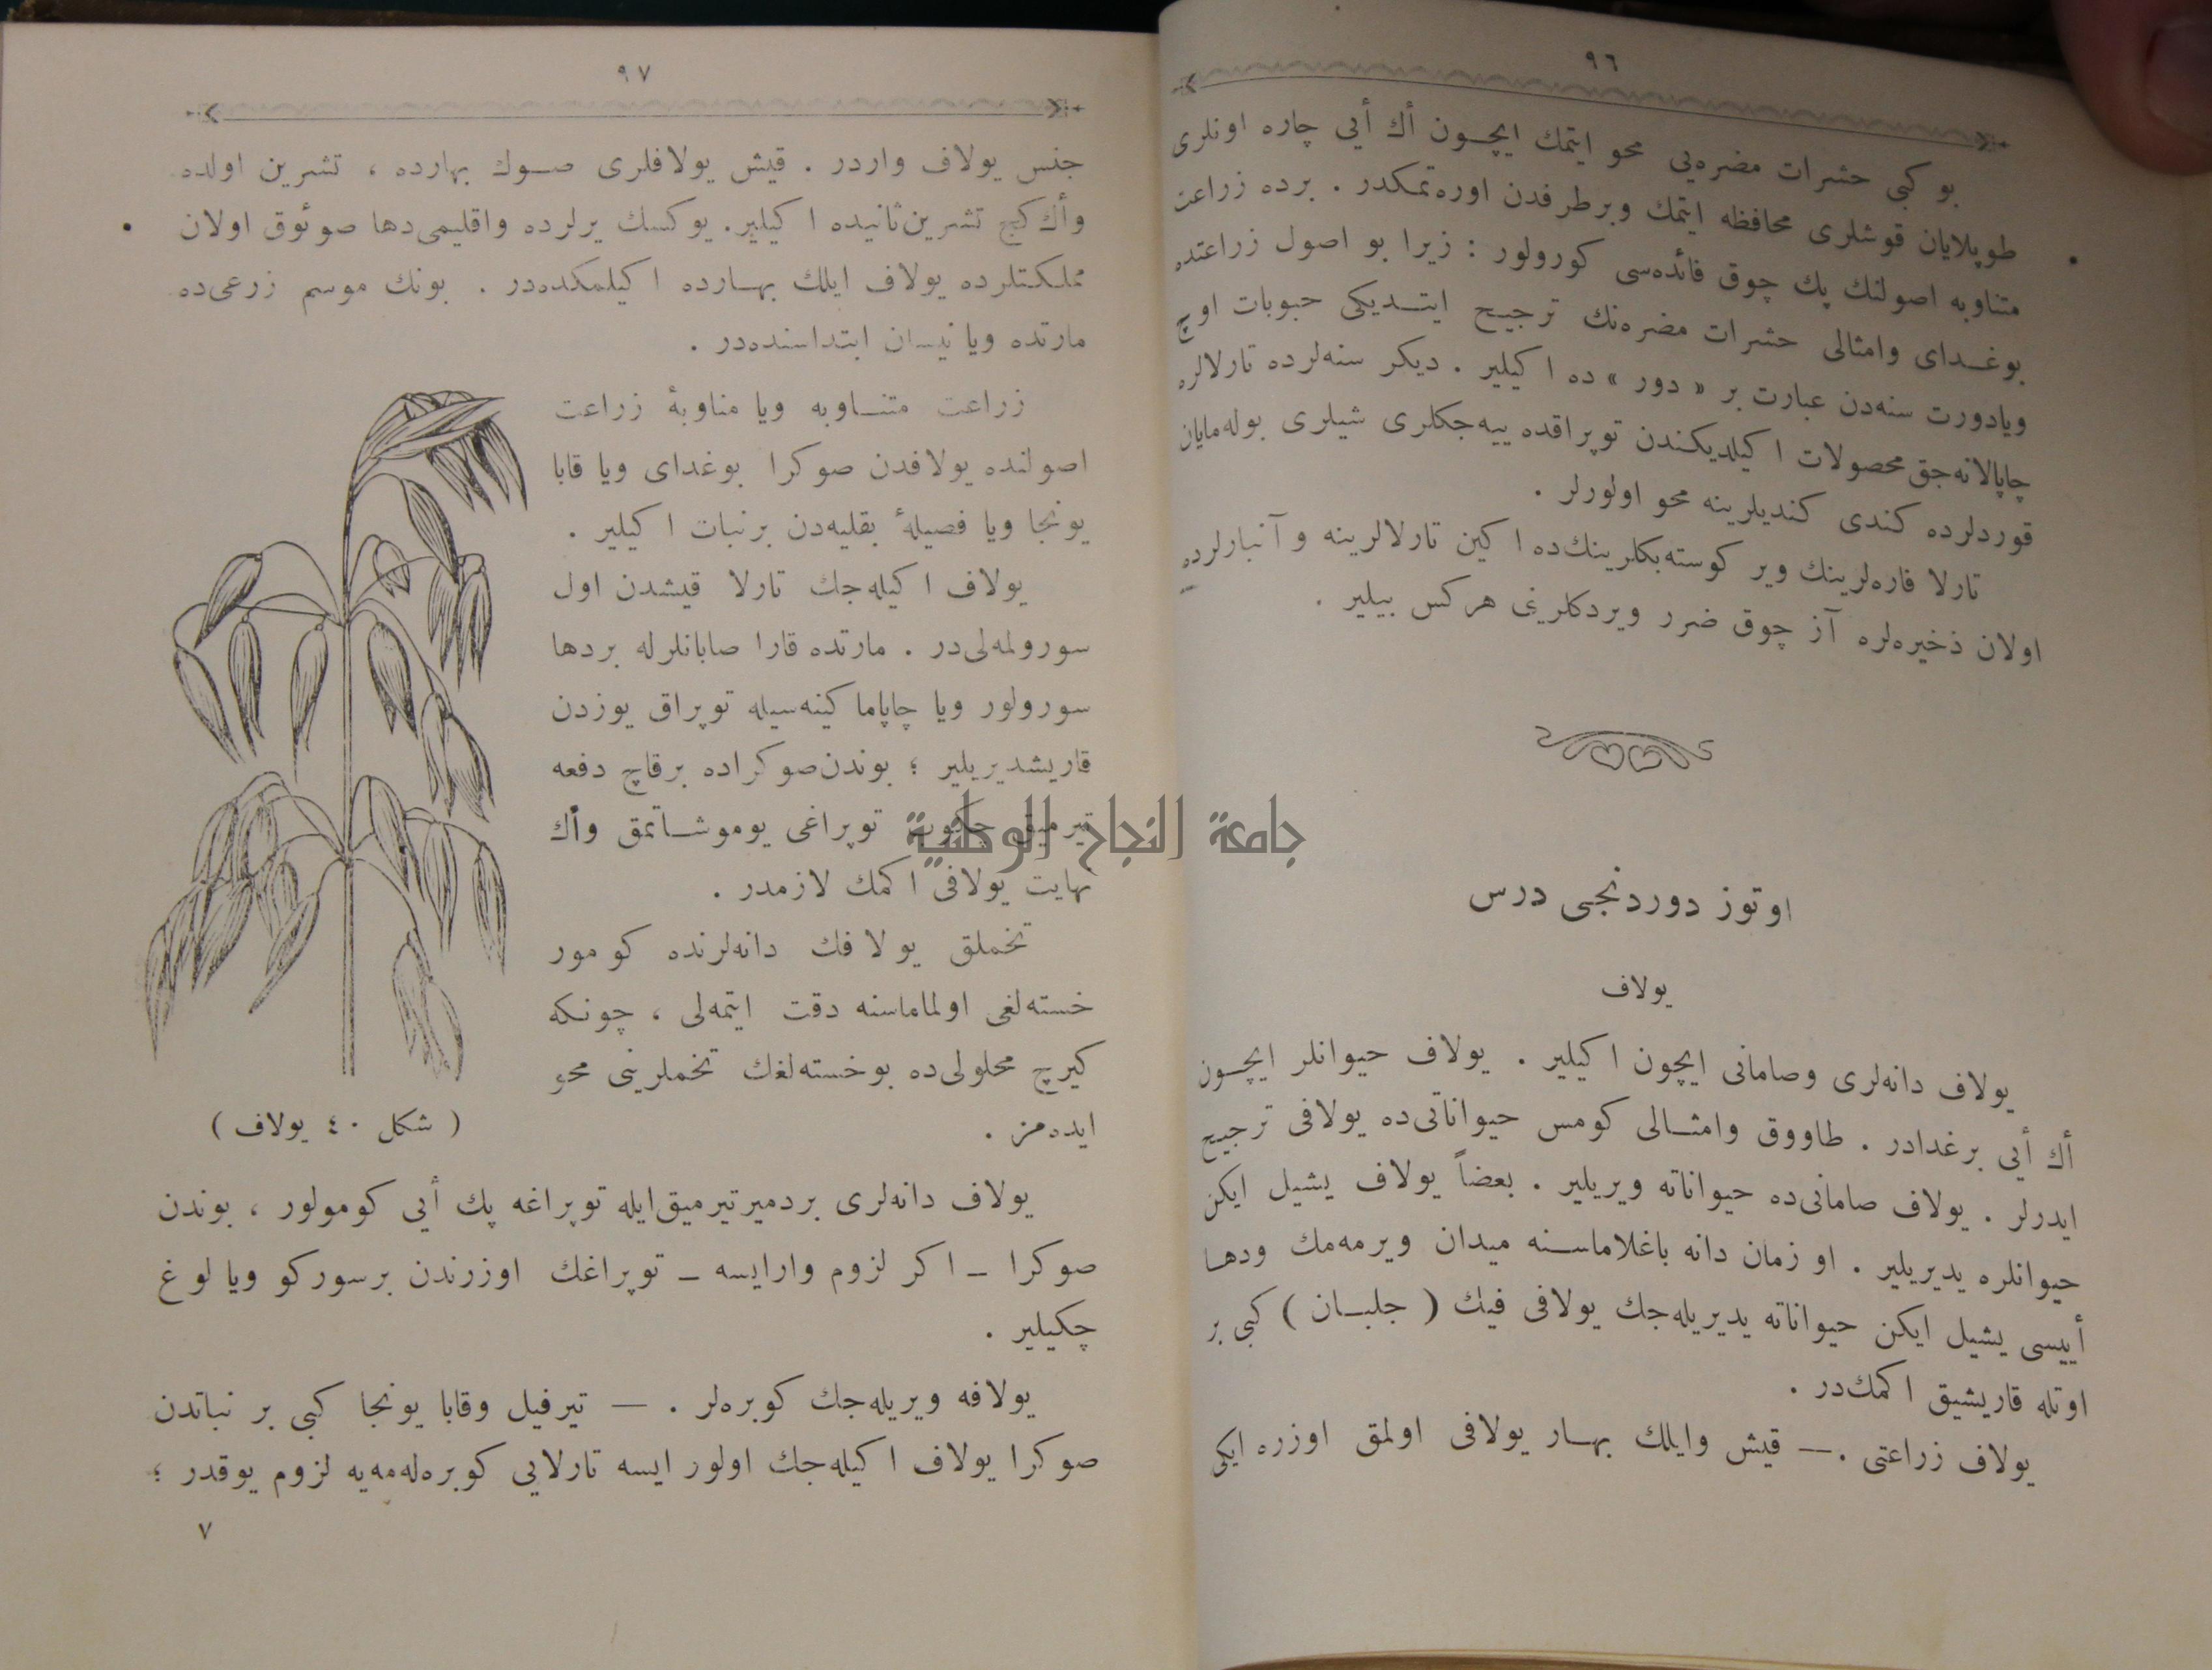 ٩٦
بو كبی حشرات مضره‌یی محو ایتمك ایچون أك أیی چاره اونلری
طوپلایان قوشلری محافظه ایتمك وبرطرفدن اوره‌تمكدر . برده زراعت
متناوبه اصولنك پك چوق فائده‌سی كورولور : زیرا بو اصول زراعتده
بوغدای وامثالی حشرات مضره‌نك ترجیح ایتدیكی حبوبات اوچ
ویادورت سنه‌دن عبارت بر « دور » ده اكیلیر . دیكر سنه‌لرده تارلالره
چاپالانه‌جق محصولات اكیلدیكندن توپراقده ییه‌جكلری شیلری بوله‌مایان
قوردلرده كندی كندیلرینه محو اولورلر .
تارلا فاره‌لرینك ویر كوسته‌بكلرینك‌ده اكین تارلالرینه و آنبارلرده
اولان ذخیره‌لره آز چوق ضرر ویردكلرینی هركس بیلیر .
اوتوز دوردنجی درس
یولاف
یولاف دانه‌لری وصامانی ایچون اكیلیر . یولاف حیوانلر ایچون
أك أیی برغدادر . طاووق وامثالی كومس حیواناتی‌ده یولافی ترجیح
ایدرلر . یولاف صامانی‌ده حیواناته ویریلیر . بعضاً یولاف یشیل ایكن
حیوانلره یدیریلیر . او زمان دانه باغلاماسنه میدان ویرمه‌مك ودها
أییسی یشیل ایكن حیواناته یدیریله‌جك یولافی فیك ( جلبان ) كبی بر
اوتله قاریشیق اكمك‌در .
یولاف زراعتی .— قیش وایلك بهار یولافی اولمق اوزره ایكی
٩٧
جنس یولاف واردر . قیش یولافلری صوك بهارده ، تشرین اولده
وأك كج تشرین‌ثانیده اكیلیر. یوكسك یرلرده واقلیمی‌دها صوئوق اولان
مملكتلرده یولاف ایلك بهارده اكیلمكده‌در . بونك موسم زرعی‌ده
مارتده ویا نیسان ابتداسنده‌در .
زراعت متناوبه ویا مناوبۀ زراعت
اصولنده یولافدن صوكرا بوغدای ویا قابا
یونجا ویا فصیلۀ بقلیه‌دن برنبات اكیلیر .
یولاف اكیله‌جك تارلا قیشدن اول
سورولمه‌لی‌در . مارتده قارا صابانلرله بردها
سورولور ویا چاپاماكینه‌سیله توپراق یوزدن
قاریشدیریلیر ؛ بوندن‌صوكراده برقاچ دفعه
تیرمیق چكوب توپراغی یوموشاتمق وأك
نهایت یولافی اكمك لازمدر .
تخملق یولافك دانه‌لرنده كومور
خسته‌لغی اولماماسنه دقت ایتمه‌لی ، چونكه
كیرچ محلولی‌ده بوخسته‌لغك تخملرینی محو
ایده‌مز .
( شكل ٤٠ یولاف )
یولاف دانه‌لری بردمیرتیرمیق‌ایله توپراغه پك أیی كومولور ، بوندن
صوكرا ـ اكر لزوم وارایسه ـ توپراغك اوزرندن برسوركو ویا لوغ
چكیلیر .
یولافه ویریله‌جك كوبره‌لر . — تیرفیل وقابا یونجا كبی بر نباتدن
صوكرا یولاف اكیله‌جك اولور ایسه تارلایی كوبره‌له‌مه‌یه لزوم یوقدر ؛
٧
جامعة النجاح الوطنية